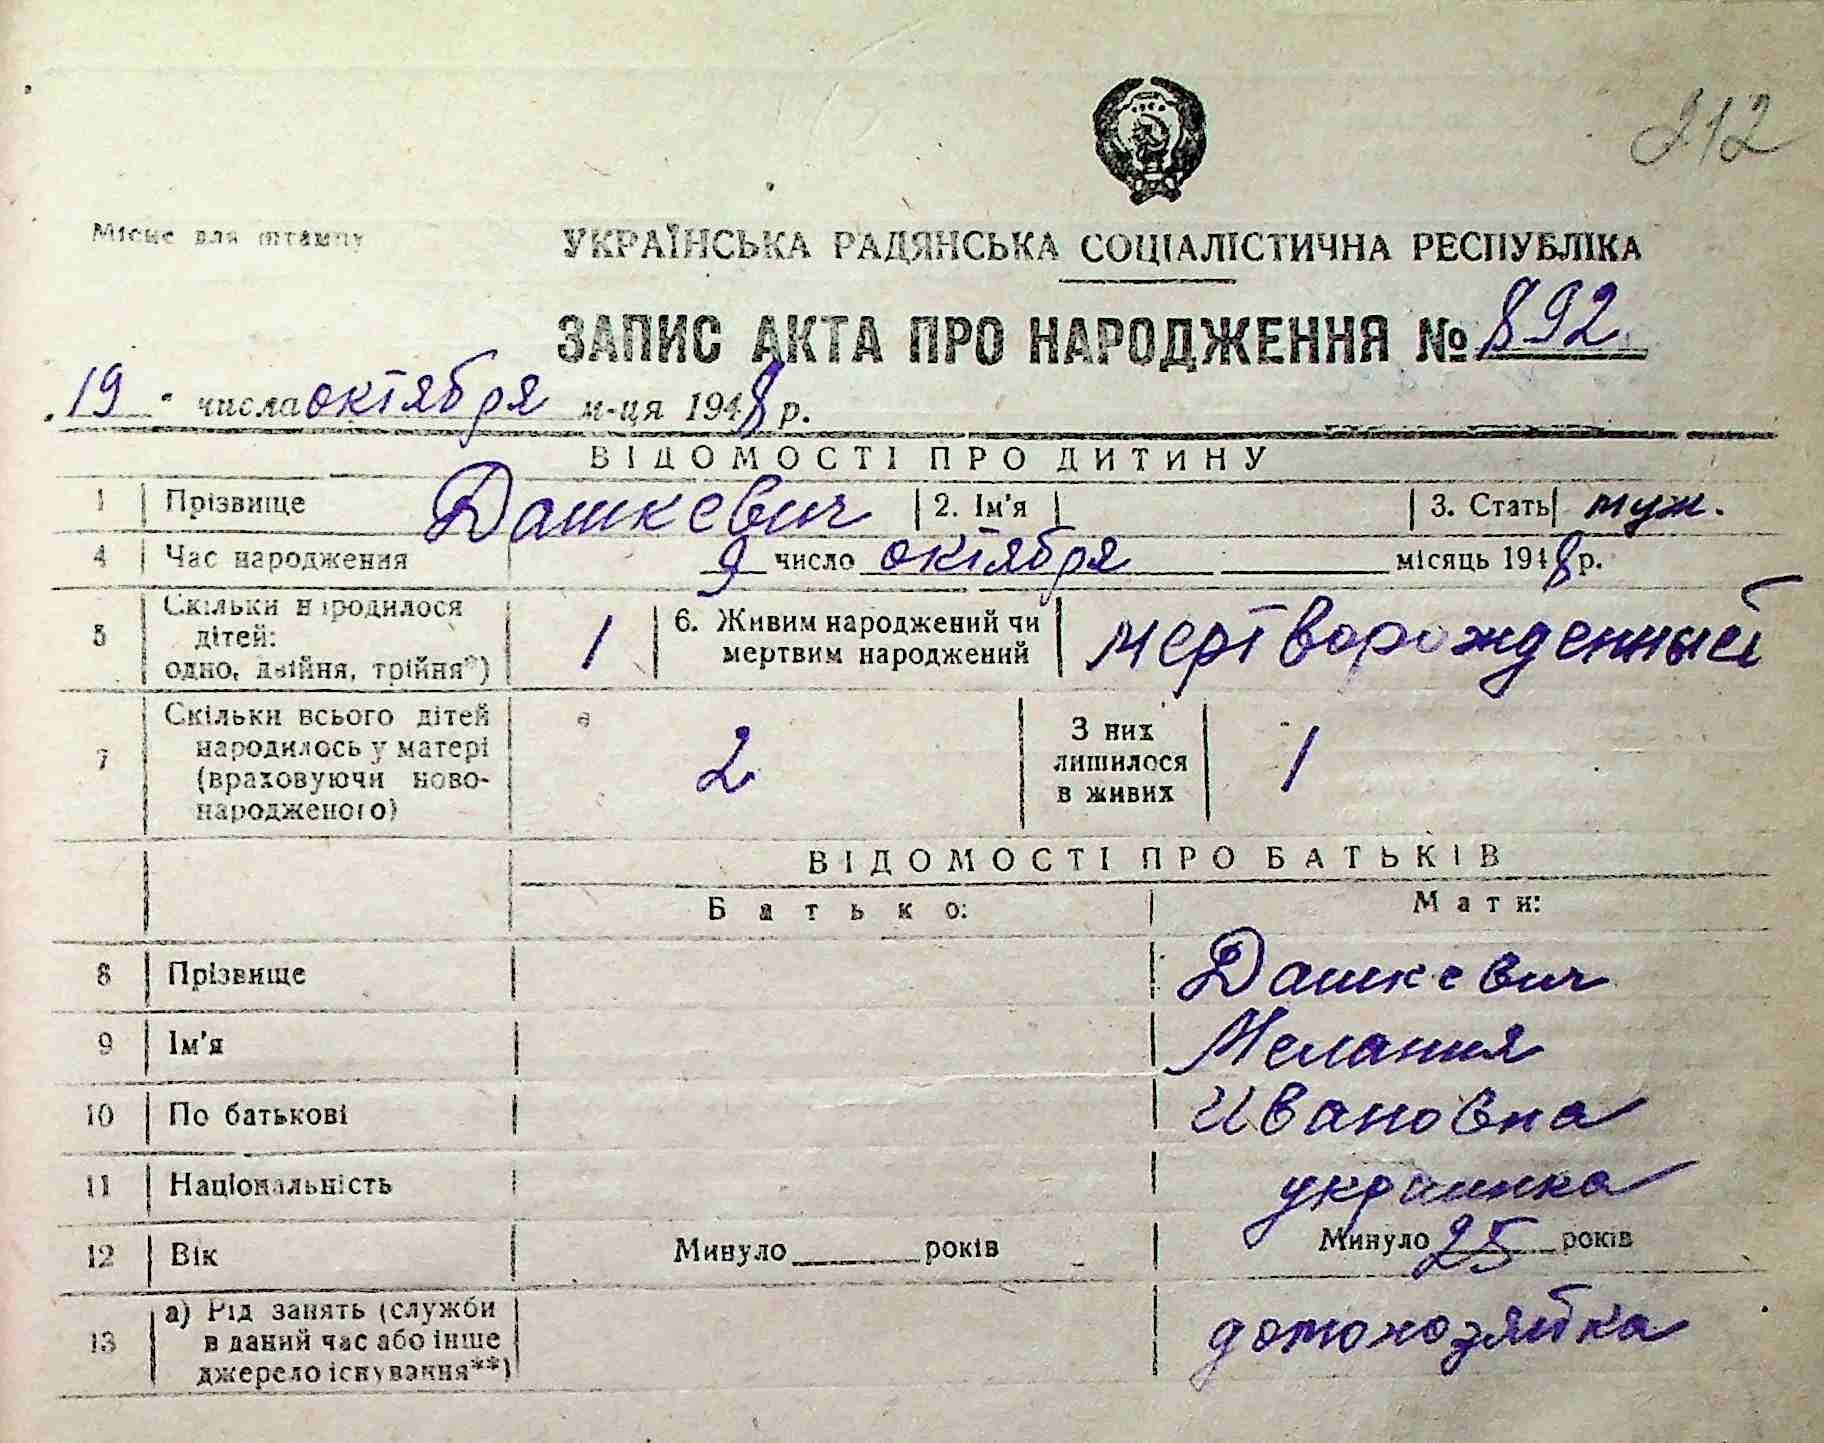 212
Місце для штампу
УКРАЇНСЬКА РАДЯНСЬКА СОЦІАЛІСТИЧНА РЕСПУБЛІКА
ЗАПИС АКТА ПРО НАРОДЖЕННЯ № 892
"19" числа октября м-ця 1948 р.
ВІДОМОСТІ ПРО ДИТИНУ
1 Прізвище Дашкевич 2. Ім'я 3. Стать муж.
4 Час народження 9 число октября місяць 1948 р.
5 Скільки народилося дітей: одно, двійня, трійня*) 1 6. Живим народжений чи мертвим народжений мертворожденный
7 Скільки всього дітей народилось у матері (враховуючи ново-народженого) 2 З них лишилося в живих 1
ВІДОМОСТІ ПРО БАТЬКІВ
Батько: Мати:
8 Прізвище Дашкевич
9 Ім'я Мелания
10 По батькові Ивановна
11 Національність украинка
12 Вік Минуло років Минуло 25 років
13 а) Рід занять (служби в даний час або інше джерело існування**) домохозяйка